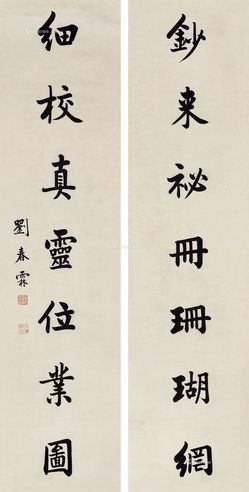 鈔来祕冊珊瑚網
細校真靈位業圖
劉春霖